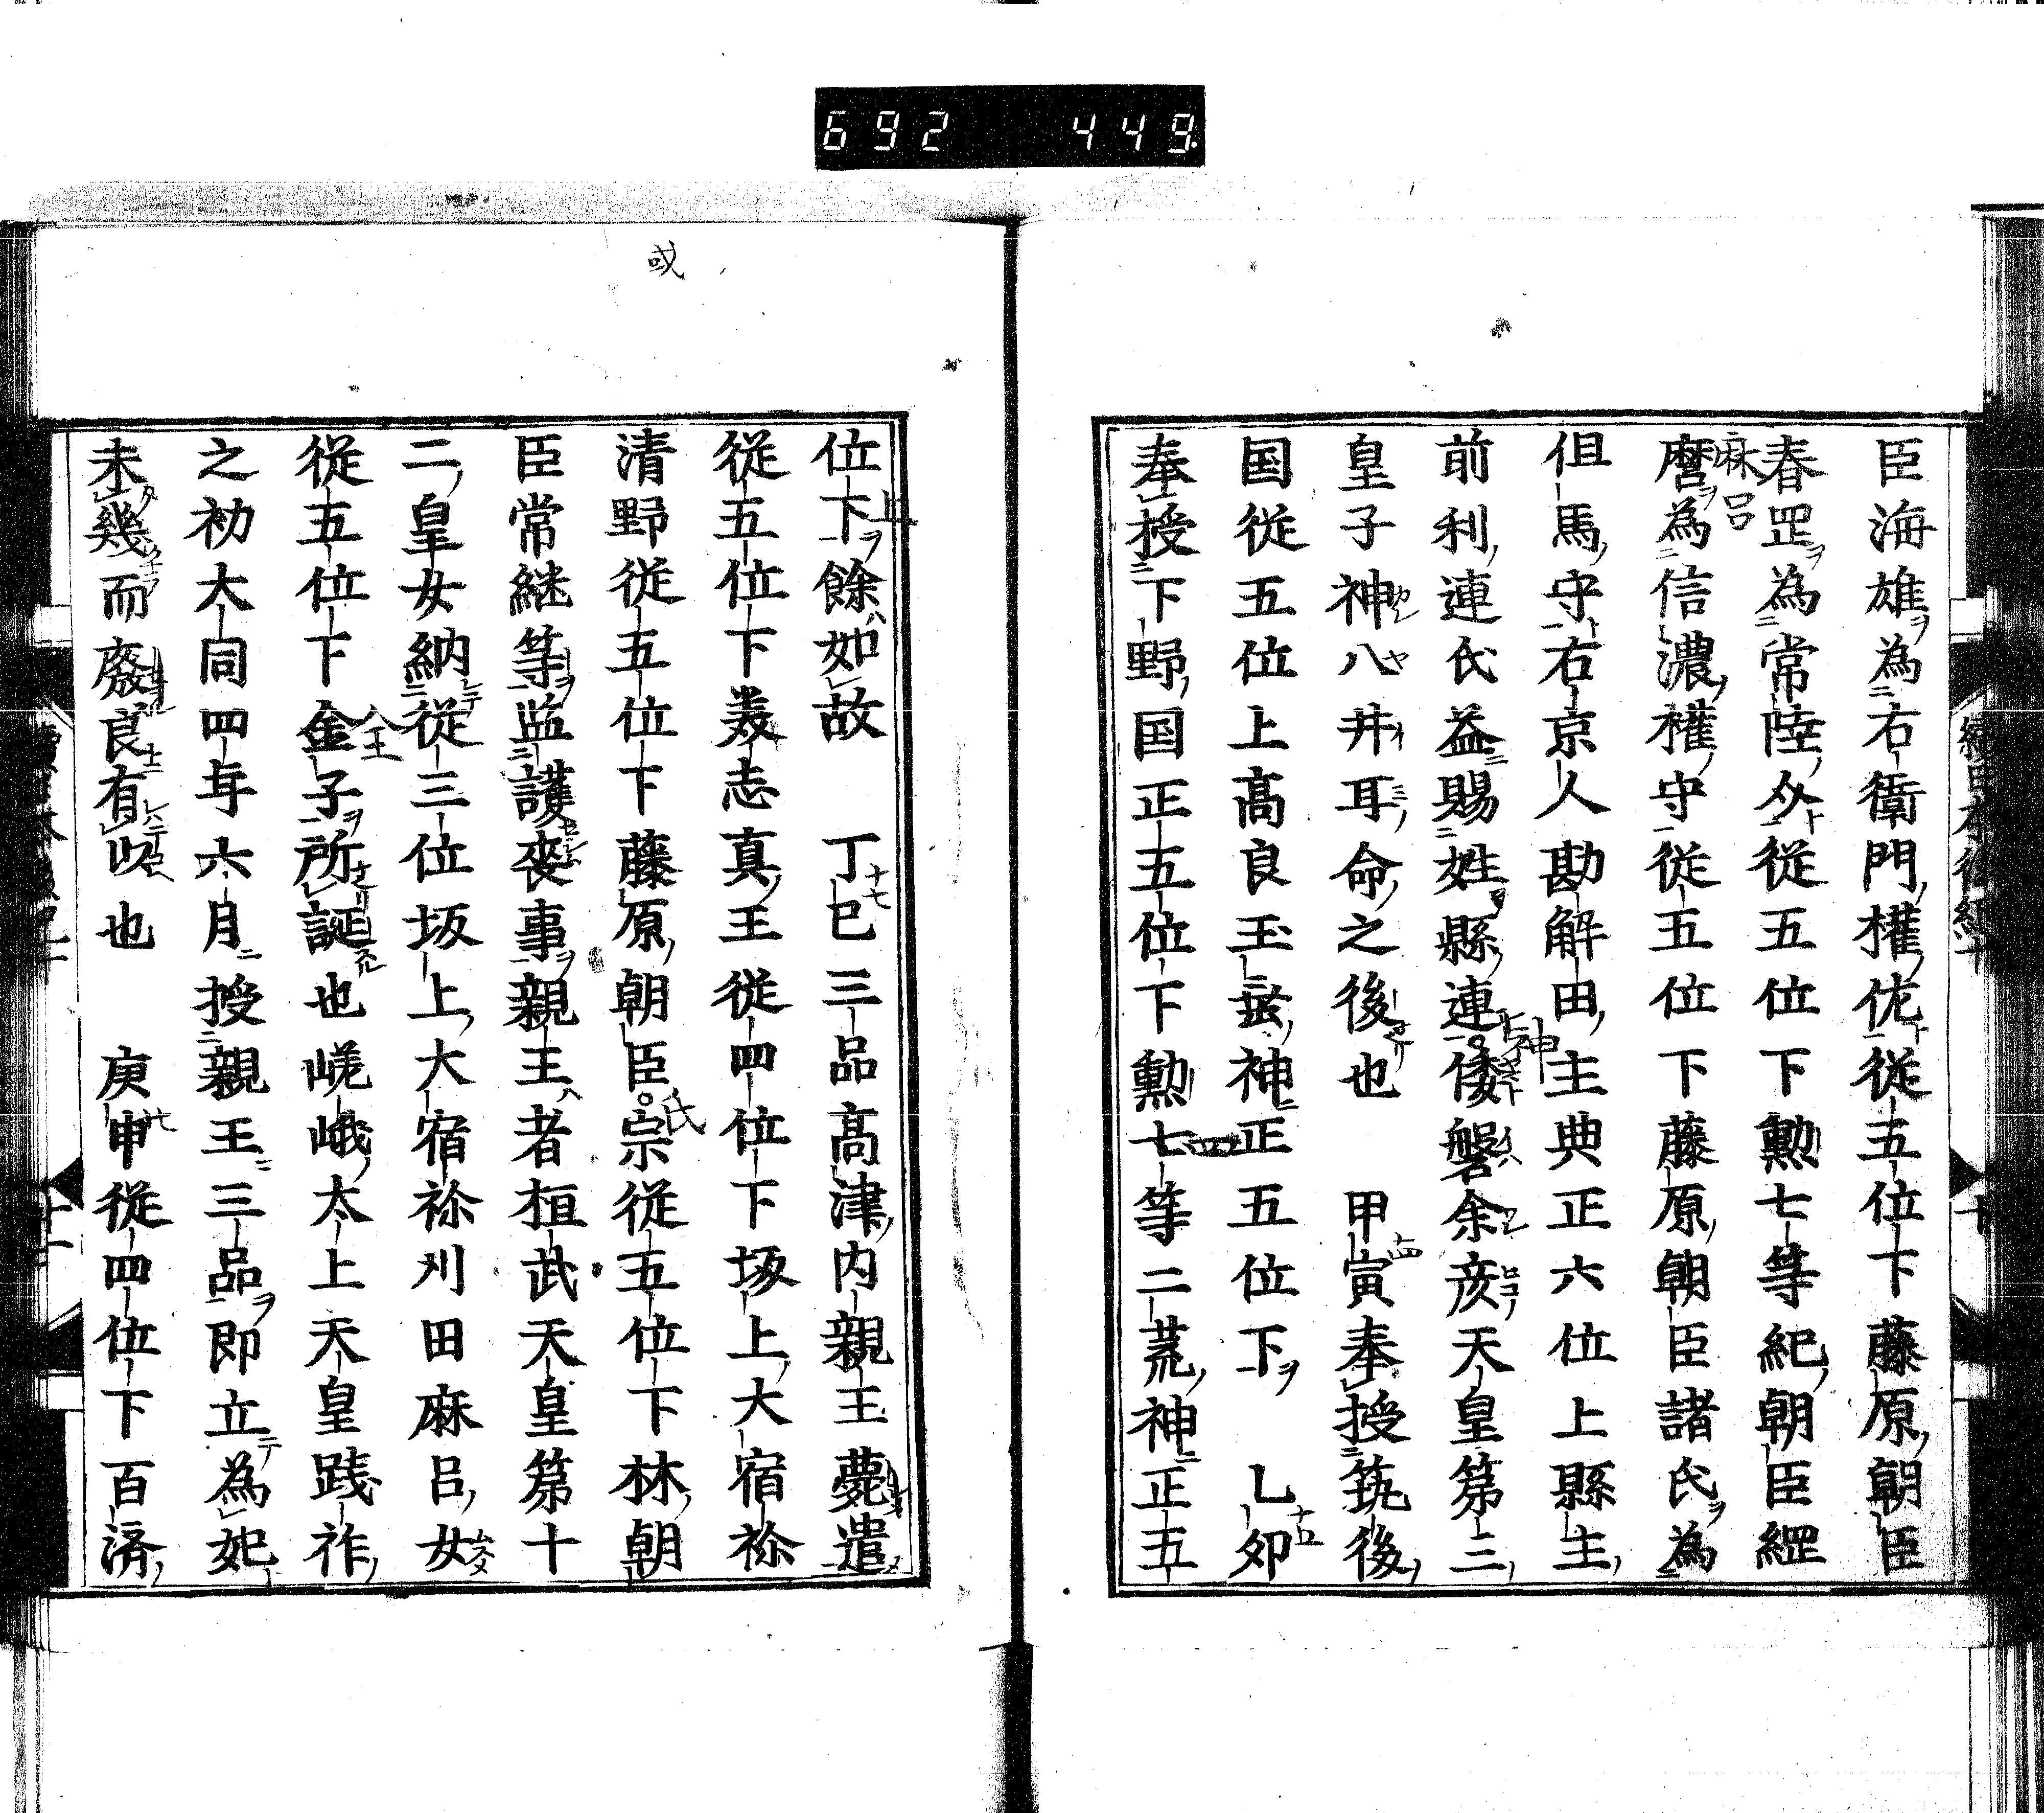 692 449
臣海雄為右衛門權佐從五位下藤原朝臣
春罡為常陸介從五位下勲七等紀朝臣綱
麿為信濃權守從五位下藤原朝臣諸氏為
但馬守右京人勘解田主典正六位上縣主
前利連氏益賜姓縣連倭磐余彦天皇第三
皇子神八井耳命之後也　甲寅奉授筑後
国從五位上高良玉垂神正五位下　乙卯
奉授下野国正五位下勲七等二荒神正五
位下餘如故　丁巳三品高津内親王薨遣
從五位下美志真王從四位下坂上大宿祢
清野從五位下藤原朝臣宗從五位下林朝
臣常継等監護喪事親王者桓武天皇第十
二皇女納從三位坂上大宿祢刈田麻呂女
從五位下金子所誕也嵯峨太上天皇踐祚
之初大同四年六月授親王三品即立為妃
未幾而廢良有以也　庚申從四位下百済
或
麻呂
神
四
上
氏
全
十四
十五
十七
廿